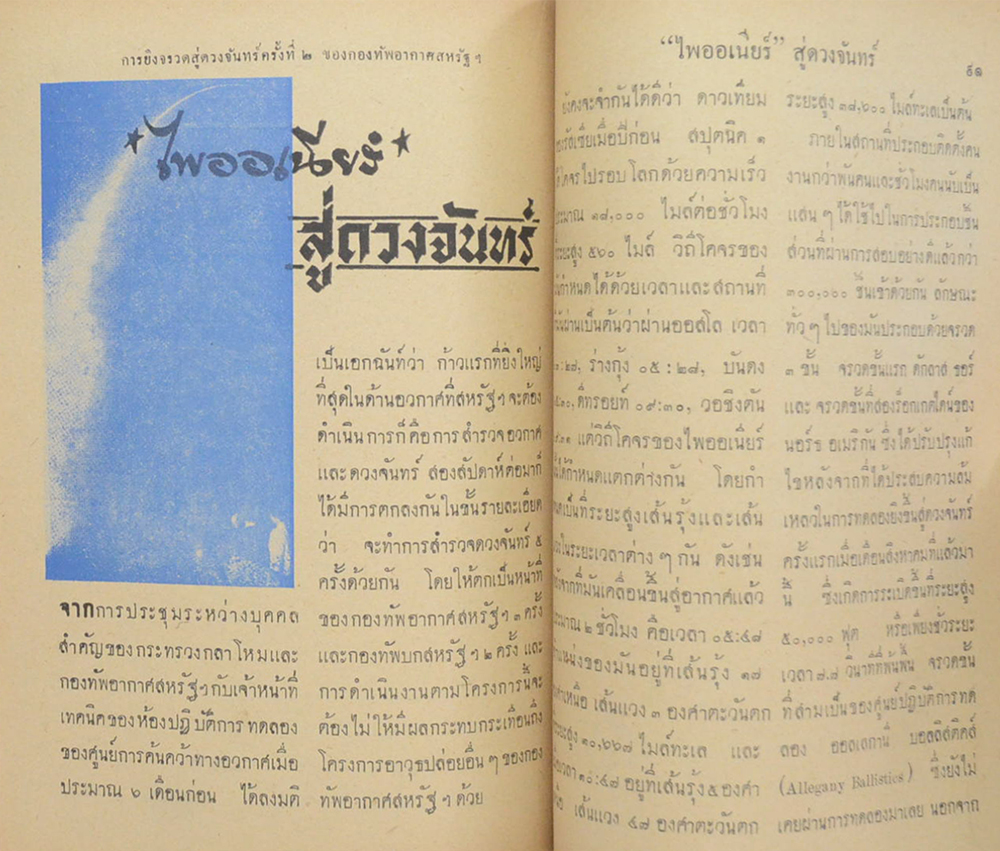 การยิงจรวดสู่ดวงจันทร์ครั้งที่ ๒ ของกองทัพอากาศสหรัฐฯ
ไพออเนียร์
สู่ดวงจันทร์
จากการประชุมระหว่างบุคคล
สำคัญของกระทรวงกลาโหมและ
กองทัพอากาศสหรัฐฯกับเจ้าหน้าที่
เทคนิคของห้องปฏิบัติการทดลอง
ของศูนย์การค้นคว้าทางอวกาศเมื่อ
ประมาณ ๖ เดือนก่อน ได้ลงมติ
เป็นเอกฉันท์ว่า ก้าวแรกที่ยิ่งใหญ่
ที่สุดในด้านอวกาศที่สหรัฐฯจะต้อง
ดำเนินการก็คือการสำรวจอวกาศ
และดวงจันทร์ สองสัปดาห์ต่อมาก็
ได้มีการตกลงกันในขั้นรายละเอียด
ว่า จะทำการสำรวจดวงจันทร์ ๕
ครั้งด้วยกัน โดยให้ตกเป็นหน้าที่
ของกองทัพอากาศสหรัฐฯ ๓ ครั้ง
และกองทัพบกสหรัฐฯ ๒ ครั้ง และ
การดำเนินงานตามโครงการนี้จะ
ต้องไม่ให้มีผลกระทบกระเทือนถึง
โครงการอาวุธปล่อยอื่นๆของกอง
ทัพอากาศสหรัฐฯด้วย
“ไพออเนียร์” สู่ดวงจันทร์
ยังคงจะจำกันได้ดีว่า ดาวเทียม
เมื่อปีก่อน สปุตนิค ๑
โคจรไปรอบโลกด้วยความเร็ว
ประมาณ ๑๘,๐๐๐ ไมล์ต่อชั่วโมง
ระยะสูง ๕๖๐ ไมล์ วิถีโคจรของ
กำหนดได้ด้วยเวลาและสถานที่
ผ่านเป็นต้นว่าผ่านออสโล เวลา
:๒๘, ร่างกุ้ง ๐๕:๒๘, บันดุง
ดีทรอยท์ ๐๙:๓๐, วอชิงตัน
แต่วิถีโคจรของไพออเนียร์
ได้กำหนดแตกต่างกัน โดยกำ
เป็นที่ระยะสูงเส้นรุ้งและเส้น
ในระยะเวลาต่างๆกัน ดังเช่น
จากที่มันเคลื่อนขึ้นสู่อากาศแล้ว
ประมาณ ๒ ชั่วโมง คือเวลา ๐๕:๔๘
ของมันอยู่ที่เส้นรุ้ง ๑๘
เหนือ เส้นแวง ๓ องศาตะวันตก
ระยะสูง ๑๐,๖๖๗ ไมล์ทะเล และ
เวลา ๑๐:๔๘ อยู่ที่เส้นรุ้ง ๕ องศา
เส้นแวง ๔๘ องศาตะวันตก
ระยะสูง ๓๘,๖๐๐ ไมล์ทะเลเป็นต้น
ภายในสถานที่ประกอบติดตั้งคน
งานกว่าพันคนและชั่วโมงคนนับเป็น
แสนๆได้ใช้ไปในการประกอบชิ้น
ส่วนที่ผ่านการสอบอย่างดีแล้วกว่า
๓๐๐,๐๐๐ ชิ้นเข้าด้วยกัน ลักษณะ
ทั่วๆไปของมันประกอบด้วยจรวด
๓ ชั้น จรวดชั้นแรก ดักลาส ธอร์
และ จรวดชั้นที่สองร็อกเกตไดน์ของ
นอร์ธ อเมริกัน ซึ่งได้ปรับปรุงแก้
ไขหลังจากที่ได้ประสบความล้ม
เหลวในการทดลองยิงขึ้นสู่ดวงจันทร์
ครั้งแรกเมื่อเดือนสิงหาคมที่แล้วมา
นี้ ซึ่งเกิดการระเบิดขึ้นที่ระยะสูง
๕๐,๐๐๐ ฟุต หรือเพียงชั่วระยะ
เวลา วินาทีที่พ้นพื้น จรวดชั้น
ที่สามเป็นของศูนย์ปฏิบัติการทด
ลอง ออลเลกานี บอลลิสติคส์
(Allegany Ballistics) ซึ่งยังไม่
เคยผ่านการทดลองมาเลย นอกจาก